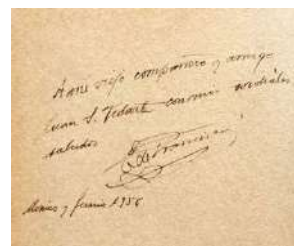 A mi viejo compañero y amigo
Juan S. Vidarte con mis cordiales
saludos
México y 1956